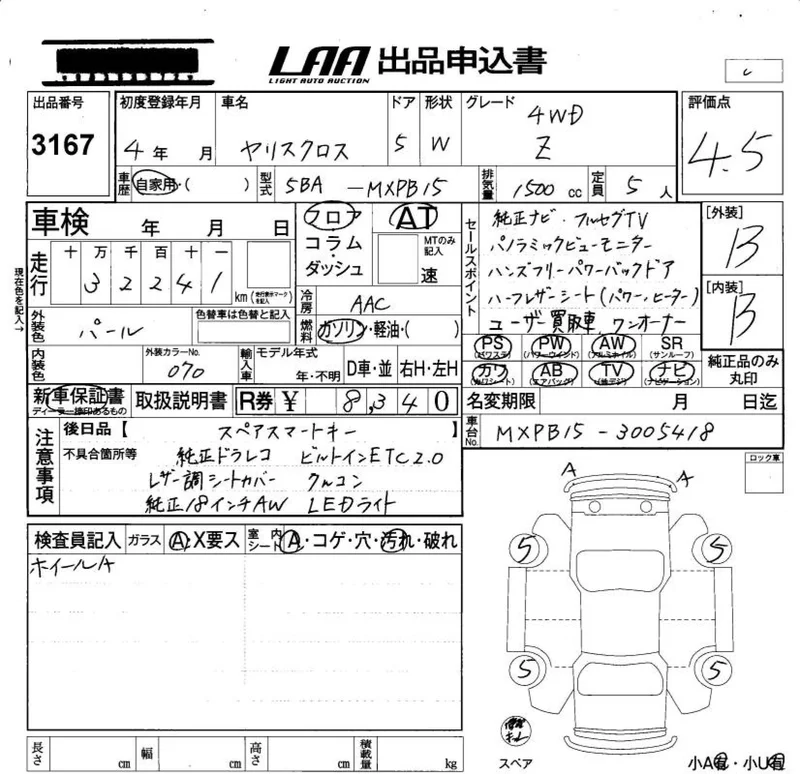 LAA 出品申込書
LIGHT AUTO AUCTION
出品番号 初度登録年月 車名 ドア 形状 グレード 評価点
3167 4年 月 ヤリスクロス 5 W 4WD Z 4.5
車歴 自家用・( ) 型式 5BA -MXPB15 排気量 1500 cc 定員 5人
車検 年 月 日
フロア コラム・ダッシュ AT MTのみ記入 速
セールスポイント
純正ナビ・フルセグTV
パノラミックビューモニター
ハンズフリーパワーバックドア
ハーフレザーシート(パワー、ヒーター)
ユーザー買取車 ワンオーナー
[外装] B
[内装] B
現在色を記入→
走行 十 万 千 百 十 一
3 2 2 4 1 km (走行表示マークを記入)
冷房 AAC
燃料 ガソリン・軽油・( )
外装色 パール 色替車は色替と記入
内装色 外装カラーNo. 070 輸入車 モデル年式 年・不明 D車・並 右H・左H
PS (パワステ) PW (パワーウインド) AW (アルミホイル) SR (サンルーフ)
カワ (カワシート) AB (エアバッグ) TV (地デジ) ナビ (ナビゲーション)
純正品のみ丸印
新車保証書 ディーラー捺印あるもの 取扱説明書 R券 ¥ 8,340
名変期限 月 日迄
車台No. MXPB15-3005418
注意事項
後日品【 スペアスマートキー 】
不具合箇所等 純正ドラレコ ビルトインETC2.0
レザー調シートカバー クルコン
純正18インチAW LEDライト
ロック車
検査員記入 ガラス A・X要ス 室内シート A・コゲ・穴・汚れ・破れ
ホイールA
A A
5 5
5 5
スペア
小A有・小U有
長さ cm 幅 cm 高さ cm 積載量 kg